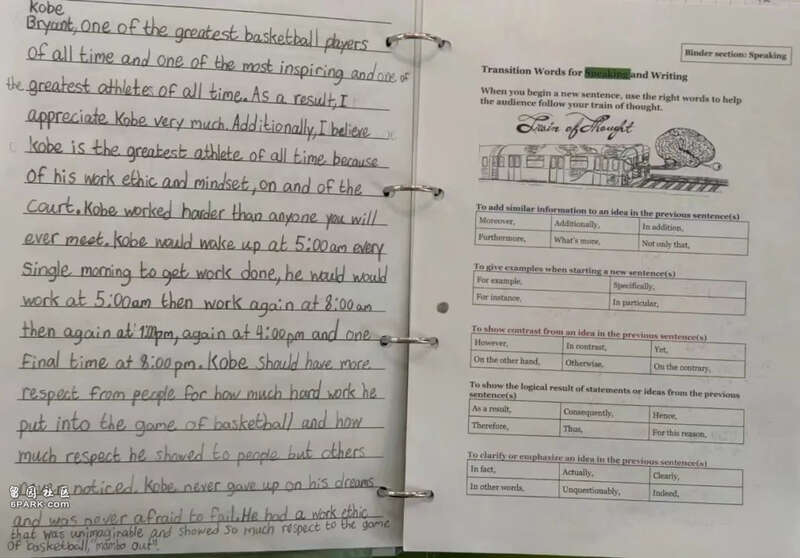 Kobe
Bryant, one of the greatest basketball players
of all time and one of the most inspiring and one of
the greatest athletes of all time. As a result, I
appreciate Kobe very much. Additionally, I believe
Kobe is the greatest athlete of all time because
of his work ethic and mindset, on and of the
court. Kobe worked harder than anyone you will
ever meet. Kobe would wake up at 5:00am every
single morning to get work done, he would would
work at 5:00am then work again at 8:00am
then again at pm, again at 4:00pm and one
final time at 8:00pm. Kobe should have more
respect from people for how much hard work he
put into the game of basketball and how
much respect he showed to people but others
noticed. Kobe never gave up on his dreams
and was never afraid to fail. He had a work ethic
that was unimaginable and showed so much respect to the game
of basketball, "mamba out".
留园社区
6PARK.COM
Binder section: Speaking
Transition Words for Speaking and Writing
When you begin a new sentence, use the right words to help
the audience follow your train of thought.
Train of Thought
To add similar information to an idea in the previous sentence(s)
Moreover, Additionally, In addition,
Furthermore, What's more, Not only that,
To give examples when starting a new sentence(s)
For example, Specifically,
For instance, In particular,
To show contrast from an idea in the previous sentence(s)
However, In contrast, Yet,
On the other hand, Otherwise, On the contrary,
To show the logical result of statements or ideas from the previous
sentence(s)
As a result, Consequently, Hence,
Therefore, Thus, For this reason,
To clarify or emphasize an idea in the previous sentence(s)
In fact, Actually, Clearly,
In other words, Unquestionably, Indeed,